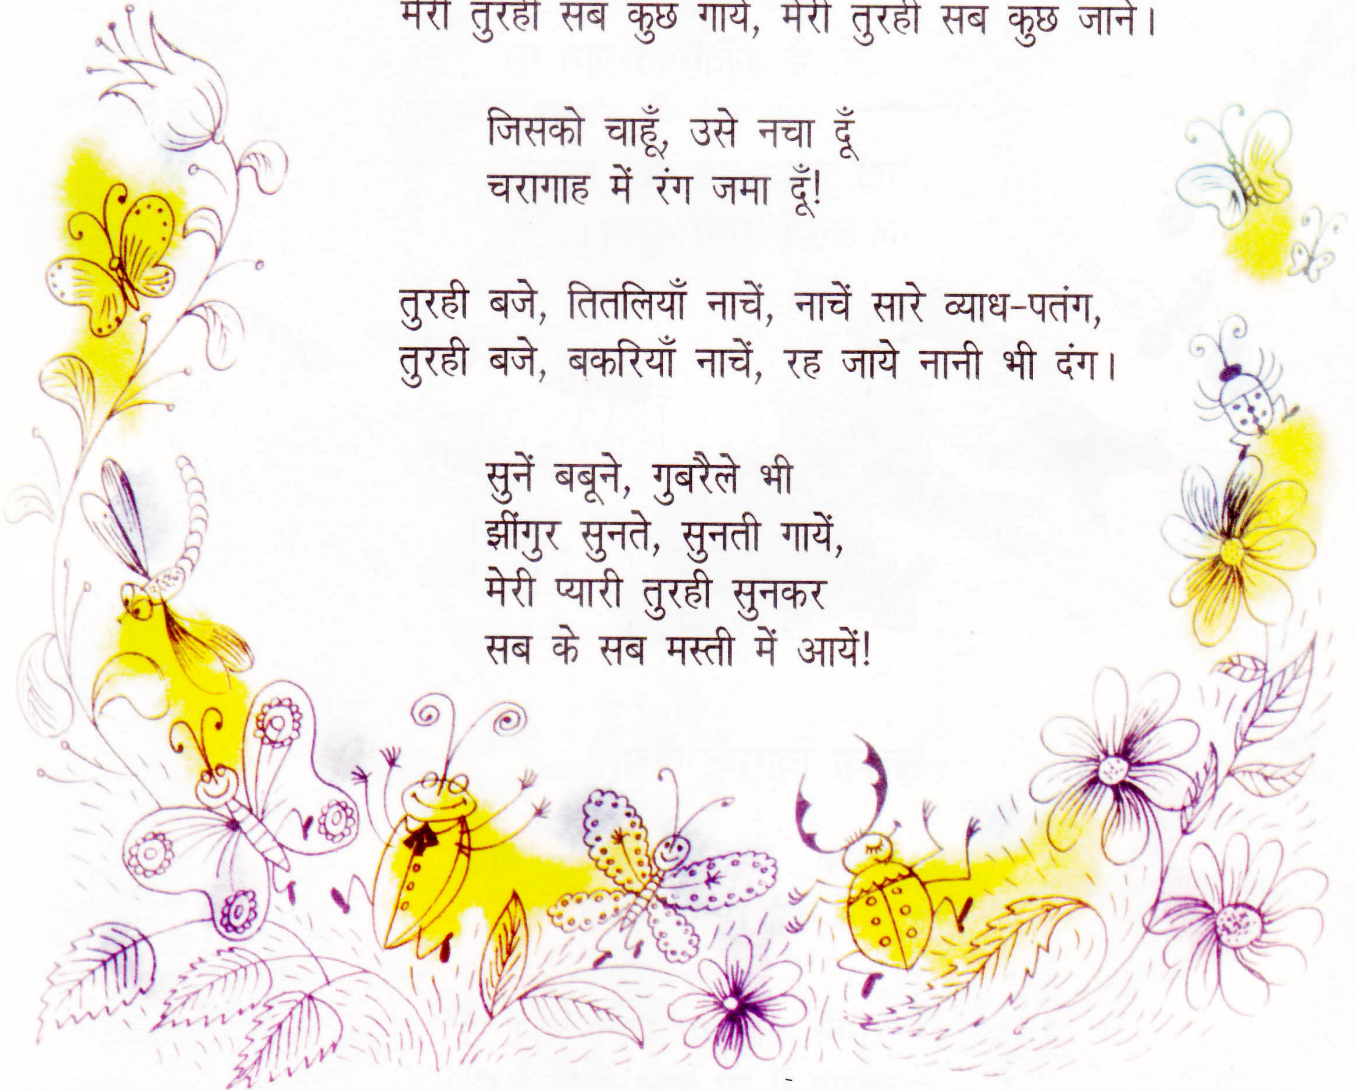 मेरी तुरही सब कुछ गाये, मेरी तुरही सब कुछ जाने।
जिसको चाहूँ, उसे नचा दूँ
चरागाह में रंग जमा दूँ!
तुरही बजे, तितलियाँ नाचें, नाचें सारे व्याध-पतंग,
तुरही बजे, बकरियाँ नाचें, रह जाये नानी भी दंग।
सुनें बबूने, गुबरैले भी
झींगुर सुनते, सुनती गायें,
मेरी प्यारी तुरही सुनकर
सब के सब मस्ती में आयें!